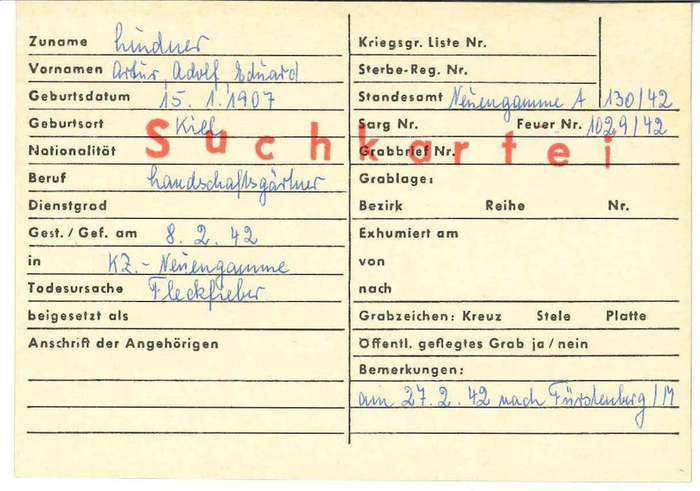 Zuname Lindner
Vornamen Artur, Adolf, Eduard
Geburtsdatum 15. 1. 1907
Geburtsort Kiel
Nationalität
Beruf Landschaftsgärtner
Dienstgrad
Gest. / Gef. am 8. 2. 42
in KZ.- Neuengamme
Todesursache Fleckfieber
beigesetzt als
Anschrift der Angehörigen
Suchkartei
Kriegsgr. Liste Nr.
Sterbe-Reg. Nr.
Standesamt Neuengamme A 130/42
Sarg Nr. Feuer Nr. 1029/42
Grabbrief Nr.
Grablage:
Bezirk Reihe Nr.
Exhumiert am
von
nach
Grabzeichen: Kreuz Stele Platte
Öffentl. gepflegtes Grab ja / nein
Bemerkungen:
am 27. 2. 42 nach Fürstenberg / M